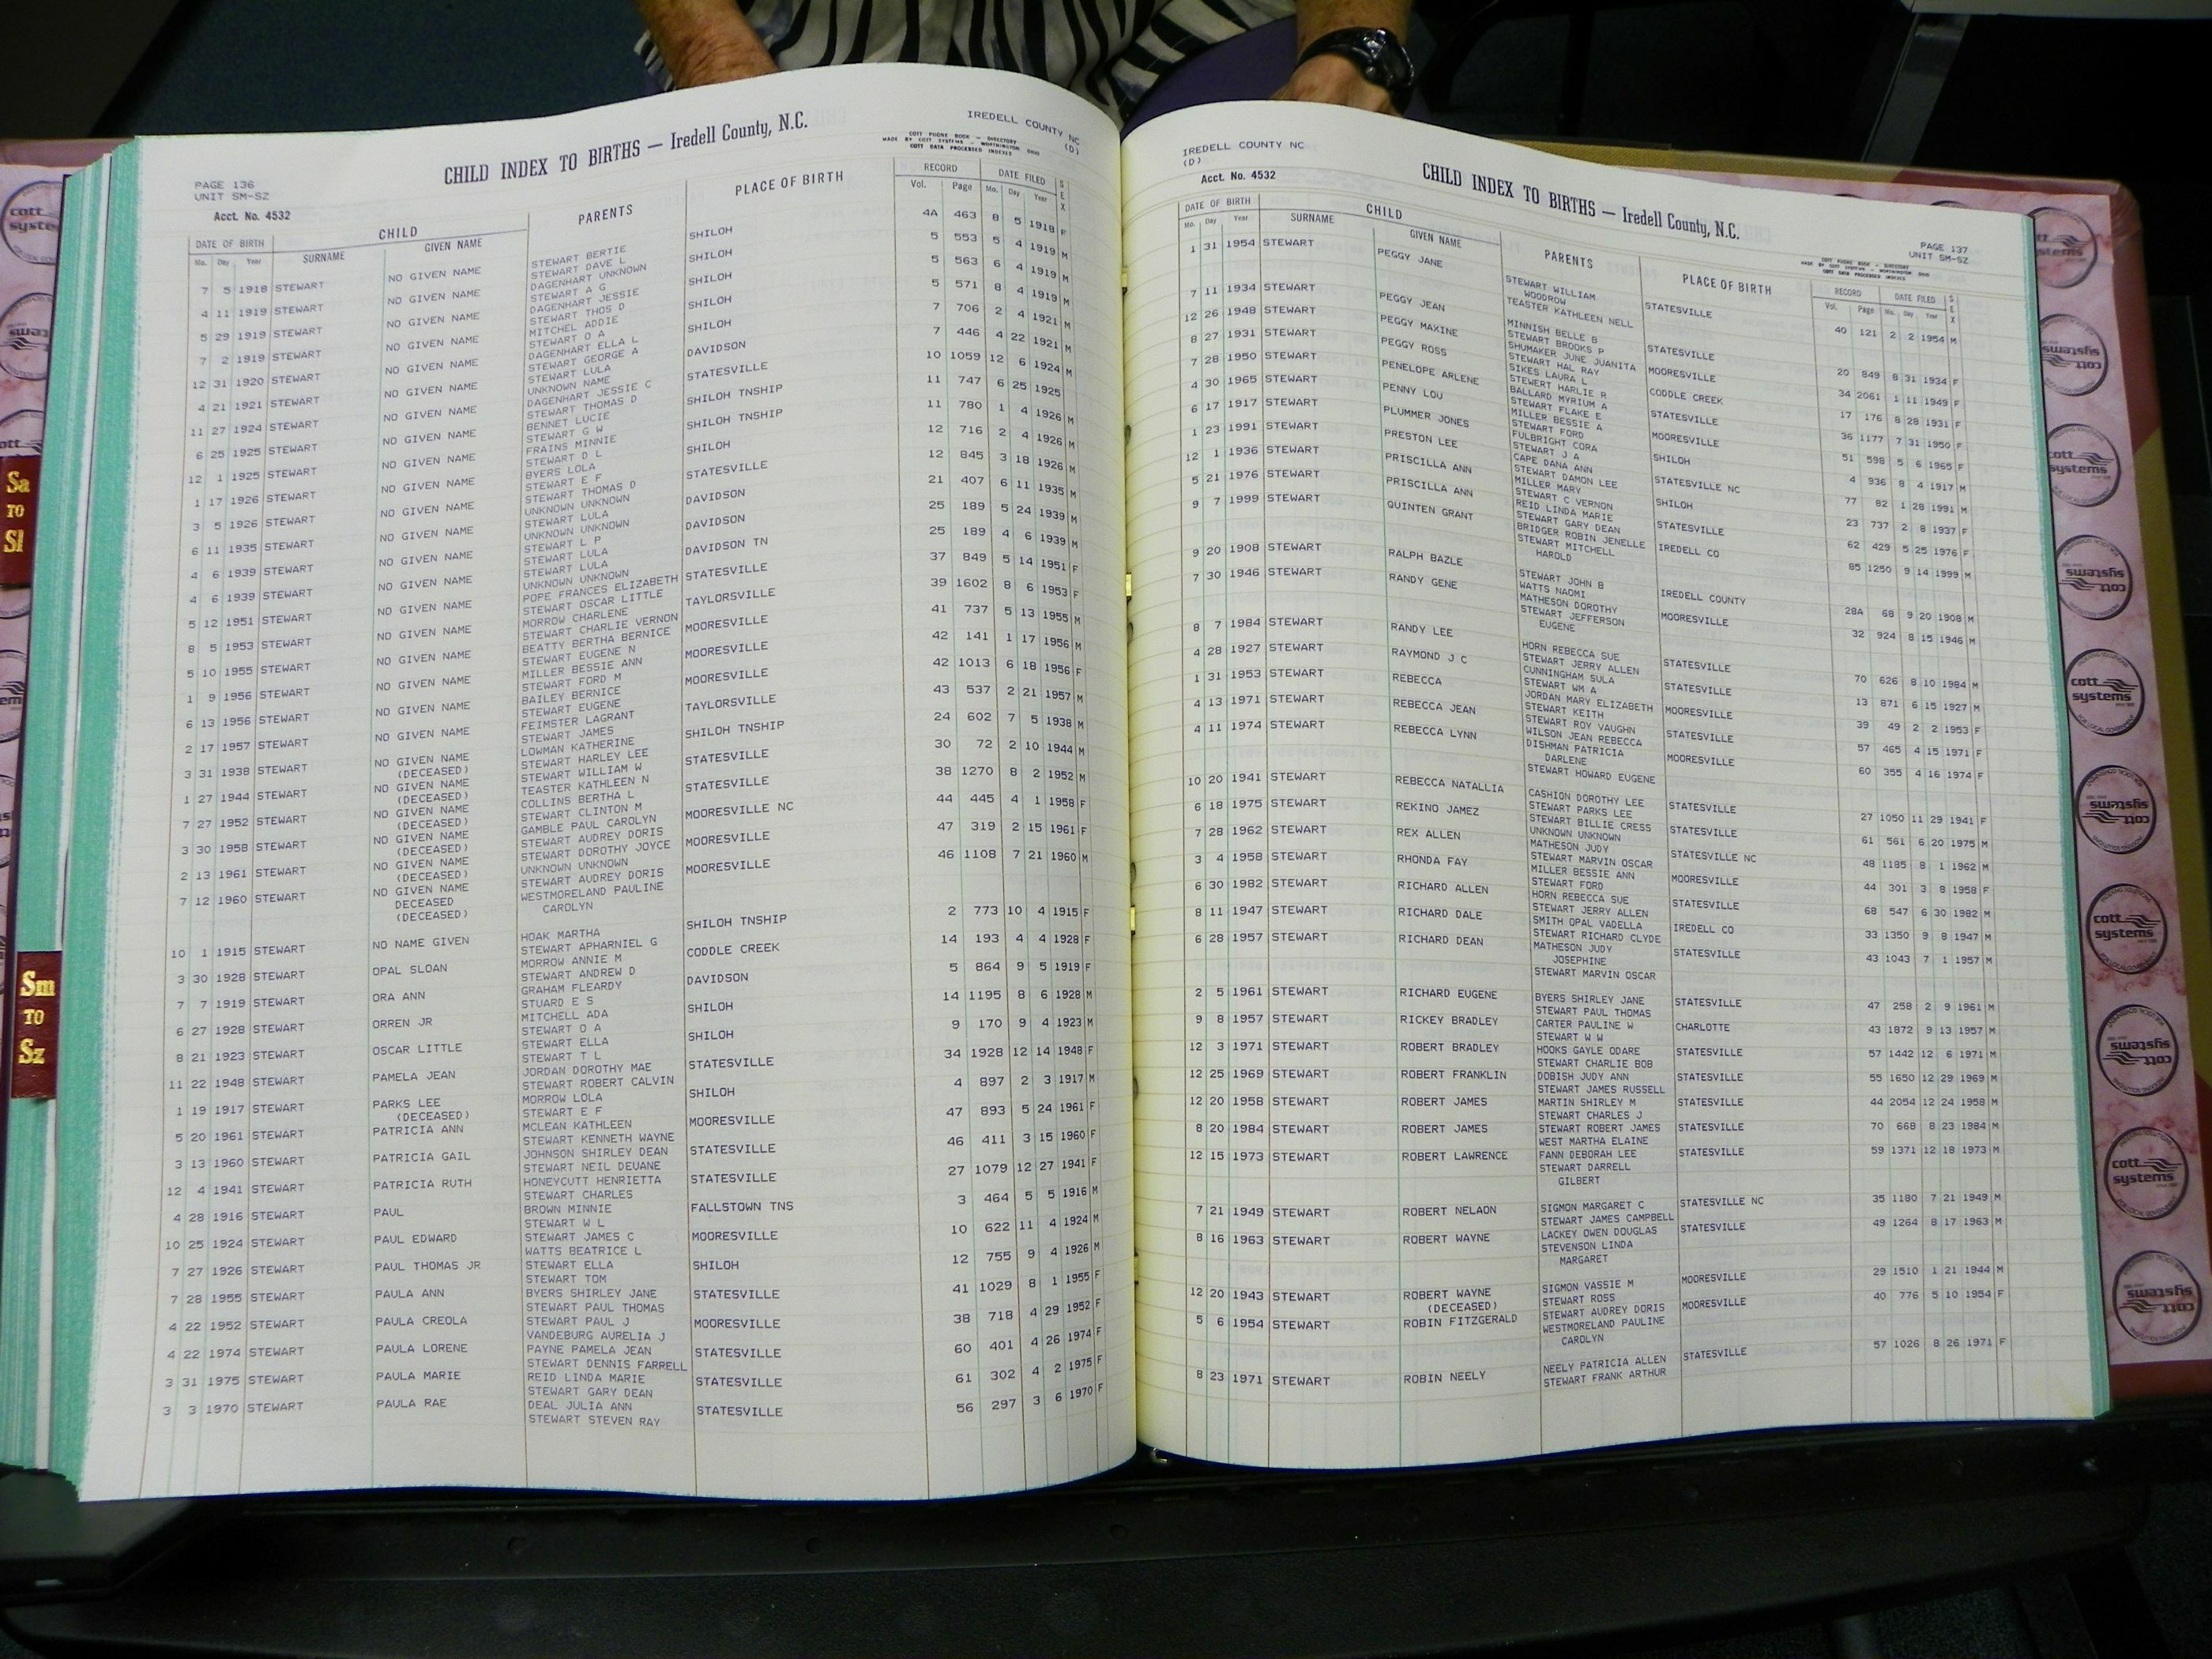 IREDELL COUNTY NC
(D)
CHILD INDEX TO BIRTHS — Iredell County, N.C.
COTT PHONE BOOK - DIRECTORY
MADE BY COTT SYSTEMS - WORTHINGTON OHIO
COTT DATA PROCESSED INDEXES
PAGE 136
UNIT SM-SZ
Acct. No. 4532
DATE OF BIRTH CHILD PARENTS PLACE OF BIRTH RECORD DATE FILED SEX
Mo. Day Year SURNAME GIVEN NAME Vol. Page Mo. Day Year
7 5 1918 STEWART NO GIVEN NAME STEWART BERTIE SHILOH 4A 463 8 5 1918 F
STEWART DAVE L
4 11 1919 STEWART NO GIVEN NAME DAGENHART UNKNOWN SHILOH 5 553 5 4 1919 M
STEWART A G
5 29 1919 STEWART NO GIVEN NAME DAGENHART JESSIE SHILOH 5 563 6 4 1919 M
STEWART THOS D
7 2 1919 STEWART NO GIVEN NAME MITCHEL ADDIE SHILOH 5 571 8 4 1919 M
STEWART O A
12 31 1920 STEWART NO GIVEN NAME DAGENHART ELLA L SHILOH 7 706 2 4 1921 M
STEWART GEORGE A
4 21 1921 STEWART NO GIVEN NAME STEWART LULA DAVIDSON 7 446 4 22 1921 M
UNKNOWN NAME
11 27 1924 STEWART NO GIVEN NAME DAGENHART JESSIE C STATESVILLE 10 1059 12 6 1924 M
STEWART THOMAS D
6 25 1925 STEWART NO GIVEN NAME BENNET LUCIE SHILOH TNSHIP 11 747 6 25 1925
STEWART G W
12 1 1925 STEWART NO GIVEN NAME FRAINS MINNIE SHILOH TNSHIP 11 780 1 4 1926 M
STEWART D L
1 17 1926 STEWART NO GIVEN NAME BYERS LOLA SHILOH 12 716 2 4 1926 M
STEWART E F
3 5 1926 STEWART NO GIVEN NAME STEWART THOMAS D STATESVILLE 12 845 3 18 1926 M
UNKNOWN UNKNOWN
6 11 1935 STEWART NO GIVEN NAME STEWART LULA DAVIDSON 21 407 6 11 1935 M
UNKNOWN UNKNOWN
4 6 1939 STEWART NO GIVEN NAME STEWART L P DAVIDSON 25 189 5 24 1939 M
STEWART LULA
4 6 1939 STEWART NO GIVEN NAME STEWART LULA DAVIDSON TN 25 189 4 6 1939 M
UNKNOWN UNKNOWN
5 12 1951 STEWART NO GIVEN NAME POPE FRANCES ELIZABETH STATESVILLE 37 849 5 14 1951 F
STEWART OSCAR LITTLE
8 5 1953 STEWART NO GIVEN NAME MORROW CHARLENE TAYLORSVILLE 39 1602 8 6 1953 F
STEWART CHARLIE VERNON
5 10 1955 STEWART NO GIVEN NAME BEATTY BERTHA BERNICE MOORESVILLE 41 737 5 13 1955 M
STEWART EUGENE N
1 9 1956 STEWART NO GIVEN NAME MILLER BESSIE ANN MOORESVILLE 42 141 1 17 1956 M
STEWART FORD M
6 13 1956 STEWART NO GIVEN NAME BAILEY BERNICE MOORESVILLE 42 1013 6 18 1956 F
STEWART EUGENE
2 17 1957 STEWART NO GIVEN NAME FEIMSTER LAGRANT TAYLORSVILLE 43 537 2 21 1957 M
STEWART JAMES
3 31 1938 STEWART NO GIVEN NAME LOWMAN KATHERINE SHILOH TNSHIP 24 602 7 5 1938 M
(DECEASED) STEWART HARLEY LEE
1 27 1944 STEWART NO GIVEN NAME STEWART WILLIAM W STATESVILLE 30 72 2 10 1944 M
(DECEASED) TEASTER KATHLEEN N
7 27 1952 STEWART NO GIVEN NAME COLLINS BERTHA L STATESVILLE 38 1270 8 2 1952 M
(DECEASED) STEWART CLINTON M
3 30 1958 STEWART NO GIVEN NAME GAMBLE PAUL CAROLYN MOORESVILLE NC 44 445 4 1 1958 F
(DECEASED) STEWART AUDREY DORIS
2 13 1961 STEWART NO GIVEN NAME STEWART DOROTHY JOYCE MOORESVILLE 47 319 2 15 1961 F
(DECEASED) UNKNOWN UNKNOWN
7 12 1960 STEWART NO GIVEN NAME STEWART AUDREY DORIS MOORESVILLE 46 1108 7 21 1960 M
DECEASED WESTMORELAND PAULINE
(DECEASED) CAROLYN
10 1 1915 STEWART NO NAME GIVEN HOAK MARTHA SHILOH TNSHIP 2 773 10 4 1915 F
STEWART APHARNIEL G
3 30 1928 STEWART OPAL SLOAN MORROW ANNIE M CODDLE CREEK 14 193 4 4 1928 F
STEWART ANDREW D
7 7 1919 STEWART ORA ANN GRAHAM FLEARDY DAVIDSON 5 864 9 5 1919 F
STUARD E S
6 27 1928 STEWART ORREN JR MITCHELL ADA SHILOH 14 1195 8 6 1928 M
STEWART O A
8 21 1923 STEWART OSCAR LITTLE STEWART ELLA SHILOH 9 170 9 4 1923 M
STEWART T L
11 22 1948 STEWART PAMELA JEAN JORDAN DOROTHY MAE STATESVILLE 34 1928 12 14 1948 F
STEWART ROBERT CALVIN
1 19 1917 STEWART PARKS LEE MORROW LOLA SHILOH 4 897 2 3 1917 M
(DECEASED) STEWART E F
5 20 1961 STEWART PATRICIA ANN MCLEAN KATHLEEN MOORESVILLE 47 893 5 24 1961 F
STEWART KENNETH WAYNE
3 13 1960 STEWART PATRICIA GAIL JOHNSON SHIRLEY DEAN STATESVILLE 46 411 3 15 1960 F
STEWART NEIL DEUANE
12 4 1941 STEWART PATRICIA RUTH HONEYCUTT HENRIETTA STATESVILLE 27 1079 12 27 1941 F
STEWART CHARLES
4 28 1916 STEWART PAUL BROWN MINNIE FALLSTOWN TNS 3 464 5 5 1916 M
STEWART W L
10 25 1924 STEWART PAUL EDWARD STEWART JAMES C MOORESVILLE 10 622 11 4 1924 M
WATTS BEATRICE L
7 27 1926 STEWART PAUL THOMAS JR STEWART ELLA SHILOH 12 755 9 4 1926 M
STEWART TOM
7 28 1955 STEWART PAULA ANN BYERS SHIRLEY JANE STATESVILLE 41 1029 8 1 1955 F
STEWART PAUL THOMAS
4 22 1952 STEWART PAULA CREOLA STEWART PAUL J MOORESVILLE 38 718 4 29 1952 F
VANDEBURG AURELIA J
4 22 1974 STEWART PAULA LORENE PAYNE PAMELA JEAN STATESVILLE 60 401 4 26 1974 F
STEWART DENNIS FARRELL
3 31 1975 STEWART PAULA MARIE REID LINDA MARIE STATESVILLE 61 302 4 2 1975 F
STEWART GARY DEAN
3 3 1970 STEWART PAULA RAE DEAL JULIA ANN STATESVILLE 56 297 3 6 1970 F
STEWART STEVEN RAY
IREDELL COUNTY NC
(D)
Acct. No. 4532
CHILD INDEX TO BIRTHS — Iredell County, N.C.
PAGE 137
UNIT SM-SZ
COTT PHONE BOOK - DIRECTORY
MADE BY COTT SYSTEMS - WORTHINGTON OHIO
COTT DATA PROCESSED INDEXES
DATE OF BIRTH CHILD PARENTS PLACE OF BIRTH RECORD DATE FILED SEX
Mo. Day Year SURNAME GIVEN NAME Vol. Page Mo. Day Year
1 31 1954 STEWART PEGGY JANE STEWART WILLIAM STATESVILLE 40 121 2 2 1954 M
WOODROW
TEASTER KATHLEEN NELL
7 11 1934 STEWART PEGGY JEAN MINNISH BELLE B STATESVILLE 20 849 8 31 1934 F
STEWART BROOKS P
12 26 1948 STEWART PEGGY MAXINE SHUMAKER JUNE JUANITA MOORESVILLE 34 2061 1 11 1949 F
STEWART HAL RAY
8 27 1931 STEWART PEGGY ROSS SIKES LAURA L CODDLE CREEK 17 176 8 28 1931 F
STEWERT HARLIE R
7 28 1950 STEWART PENELOPE ARLENE BALLARD MYRIUM A STATESVILLE 36 1177 7 31 1950 F
STEWART FLAKE E
4 30 1965 STEWART PENNY LOU MILLER BESSIE A MOORESVILLE 51 598 5 6 1965 F
STEWART FORD
6 17 1917 STEWART PLUMMER JONES FULBRIGHT CORA SHILOH 4 936 8 4 1917 M
STEWART J A
1 23 1991 STEWART PRESTON LEE CAPE DANA ANN STATESVILLE NC 77 82 1 28 1991 M
STEWART DAMON LEE
12 1 1936 STEWART PRISCILLA ANN MILLER MARY SHILOH 23 737 2 8 1937 F
STEWART C VERNON
5 21 1976 STEWART PRISCILLA ANN REID LINDA MARIE STATESVILLE 62 429 5 25 1976 F
STEWART GARY DEAN
9 7 1999 STEWART QUINTEN GRANT BRIDGER ROBIN JENELLE IREDELL CO 85 1250 9 14 1999 M
STEWART MITCHELL
HAROLD
9 20 1908 STEWART RALPH BAZLE STEWART JOHN B IREDELL COUNTY 28A 68 9 20 1908 M
WATTS NAOMI
7 30 1946 STEWART RANDY GENE MATHESON DOROTHY MOORESVILLE 32 924 8 15 1946 M
STEWART JEFFERSON
EUGENE
8 7 1984 STEWART RANDY LEE HORN REBECCA SUE STATESVILLE 70 626 8 10 1984 M
STEWART JERRY ALLEN
4 28 1927 STEWART RAYMOND J C CUNNINGHAM SULA STATESVILLE 13 871 6 15 1927 M
STEWART WM A
1 31 1953 STEWART REBECCA JORDAN MARY ELIZABETH MOORESVILLE 39 49 2 2 1953 F
STEWART KEITH
4 13 1971 STEWART REBECCA JEAN STEWART ROY VAUGHN STATESVILLE 57 465 4 15 1971 F
WILSON JEAN REBECCA
4 11 1974 STEWART REBECCA LYNN DISHMAN PATRICIA MOORESVILLE 60 355 4 16 1974 F
DARLENE
STEWART HOWARD EUGENE
10 20 1941 STEWART REBECCA NATALLIA CASHION DOROTHY LEE STATESVILLE 27 1050 11 29 1941 F
STEWART PARKS LEE
6 18 1975 STEWART REKINO JAMEZ STEWART BILLIE CRESS STATESVILLE 61 561 6 20 1975 M
UNKNOWN UNKNOWN
7 28 1962 STEWART REX ALLEN MATHESON JUDY STATESVILLE NC 48 1185 8 1 1962 M
STEWART MARVIN OSCAR
3 4 1958 STEWART RHONDA FAY MILLER BESSIE ANN MOORESVILLE 44 301 3 8 1958 F
STEWART FORD
6 30 1982 STEWART RICHARD ALLEN HORN REBECCA SUE STATESVILLE 68 547 6 30 1982 M
STEWART JERRY ALLEN
8 11 1947 STEWART RICHARD DALE SMITH OPAL VADELLA IREDELL CO 33 1350 9 8 1947 M
STEWART RICHARD CLYDE
6 28 1957 STEWART RICHARD DEAN MATHESON JUDY STATESVILLE 43 1043 7 1 1957 M
JOSEPHINE
STEWART MARVIN OSCAR
2 5 1961 STEWART RICHARD EUGENE BYERS SHIRLEY JANE STATESVILLE 47 258 2 9 1961 M
STEWART PAUL THOMAS
9 8 1957 STEWART RICKEY BRADLEY CARTER PAULINE W CHARLOTTE 43 1872 9 13 1957 M
STEWART W W
12 3 1971 STEWART ROBERT BRADLEY HOOKS GAYLE ODARE STATESVILLE 57 1442 12 6 1971 M
STEWART CHARLIE BOB
12 25 1969 STEWART ROBERT FRANKLIN DOBISH JUDY ANN STATESVILLE 55 1650 12 29 1969 M
STEWART JAMES RUSSELL
12 20 1958 STEWART ROBERT JAMES MARTIN SHIRLEY M STATESVILLE 44 2054 12 24 1958 M
STEWART CHARLES J
8 20 1984 STEWART ROBERT JAMES STEWART ROBERT JAMES STATESVILLE 70 668 8 23 1984 M
WEST MARTHA ELAINE
12 15 1973 STEWART ROBERT LAWRENCE FANN DEBORAH LEE STATESVILLE 59 1371 12 18 1973 M
STEWART DARRELL
GILBERT
7 21 1949 STEWART ROBERT NELAON SIGMON MARGARET C STATESVILLE NC 35 1180 7 21 1949 M
STEWART JAMES CAMPBELL
8 16 1963 STEWART ROBERT WAYNE LACKEY OWEN DOUGLAS STATESVILLE 49 1264 8 17 1963 M
STEVENSON LINDA
MARGARET
12 20 1943 STEWART ROBERT WAYNE SIGMON VASSIE M MOORESVILLE 29 1510 1 21 1944 M
(DECEASED) STEWART ROSS
5 6 1954 STEWART ROBIN FITZGERALD STEWART AUDREY DORIS MOORESVILLE 40 776 5 10 1954 F
WESTMORELAND PAULINE
CAROLYN
8 23 1971 STEWART ROBIN NEELY NEELY PATRICIA ALLEN STATESVILLE 57 1026 8 26 1971 F
STEWART FRANK ARTHUR
Sa
TO
Sl
Sm
TO
Sz
cott
systems